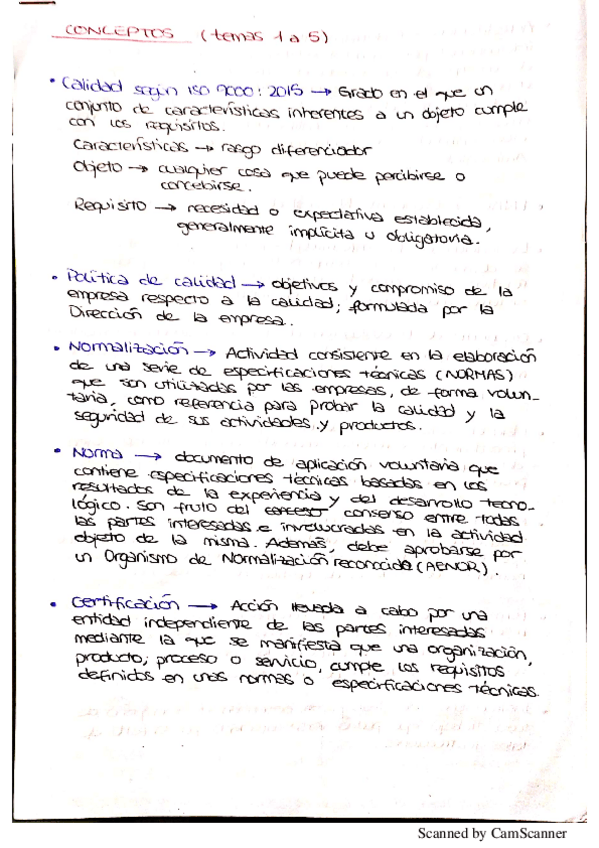 CONCEPTOS (temas 1 a 5)
• Calidad según ISO 9000: 2015 → Grado en el que un
conjunto de características inherentes a un objeto cumple
con los requisitos.
Características → rasgo diferenciador
Objeto → cualquier cosa que puede percibirse o
concebirse.
Requisito → necesidad o expectativa establecida,
generalmente implícita u obligatoria.
• Política de calidad → objetivos y compromiso de la
empresa respecto a la calidad; formulada por la
Dirección de la empresa.
• Normalización → Actividad consistente en la elaboración
de una serie de especificaciones técnicas (NORMAS)
que son utilizadas por las empresas, de forma volun-
taria, como referencia para probar la calidad y la
seguridad de sus actividades y productos.
• Norma → documento de aplicación voluntaria que
contiene especificaciones técnicas basadas en los
resultados de la experiencia y del desarrollo tecno-
lógico. Son fruto del consenso entre todas
las partes interesadas e involucradas en la actividad
objeto de la misma. Además, debe aprobarse por
un Organismo de Normalización reconocido (AENOR).
• Certificación → Acción llevada a cabo por una
entidad independiente de las partes interesadas
mediante la que se manifiesta que una organización,
producto, proceso o servicio, cumple los requisitos
definidos en unas normas o especificaciones técnicas.
Scanned by CamScanner